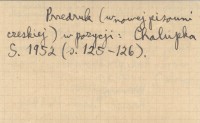 Przedruk (w nowej pisowni
czeskiej) w pozycji: Chalupka
S. 1952 (s. 125-126).